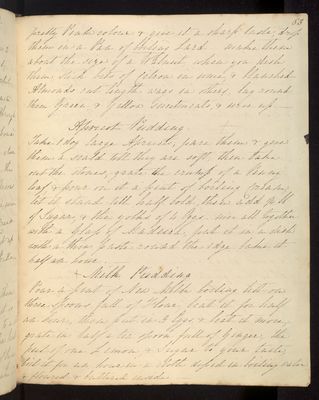 83
pretty Pink colour & give it a sharp taste, drop
them in a Pan of boiling Lard make them
about the size of a Walnut, when you dish
them stick bits of citron in some, & blanched
Almonds cut length ways in others, lay round
them Green & Yellow Sweetmeats, & serve up
Apricot Pudding
Take 1 doz large Apricots, pare them & give
them a scald till they are soft, then take
out the stones, grate the crumb of a Penny
loaf & pour on it a pint of boiling Cream,
let it stand till half cold, then add ¼ lb
of Sugar, & the yolks of 4 Eggs. mix all together
with a glass of Madeira, put it in a dish
with a thin paste round the edge bake it
half an hour.
Milk Pudding
Pour a pint of New Milk boiling hot on
three spoons full of Flour, beat it for half
an hour, then put in 3 Eggs & beat it more,
grate in half a tea spoon full of Ginger, the
peel of one Lemon, & Sugar to your taste,
boil it for an hour in a cloth dipped in boiling water
& floured & buttered inside